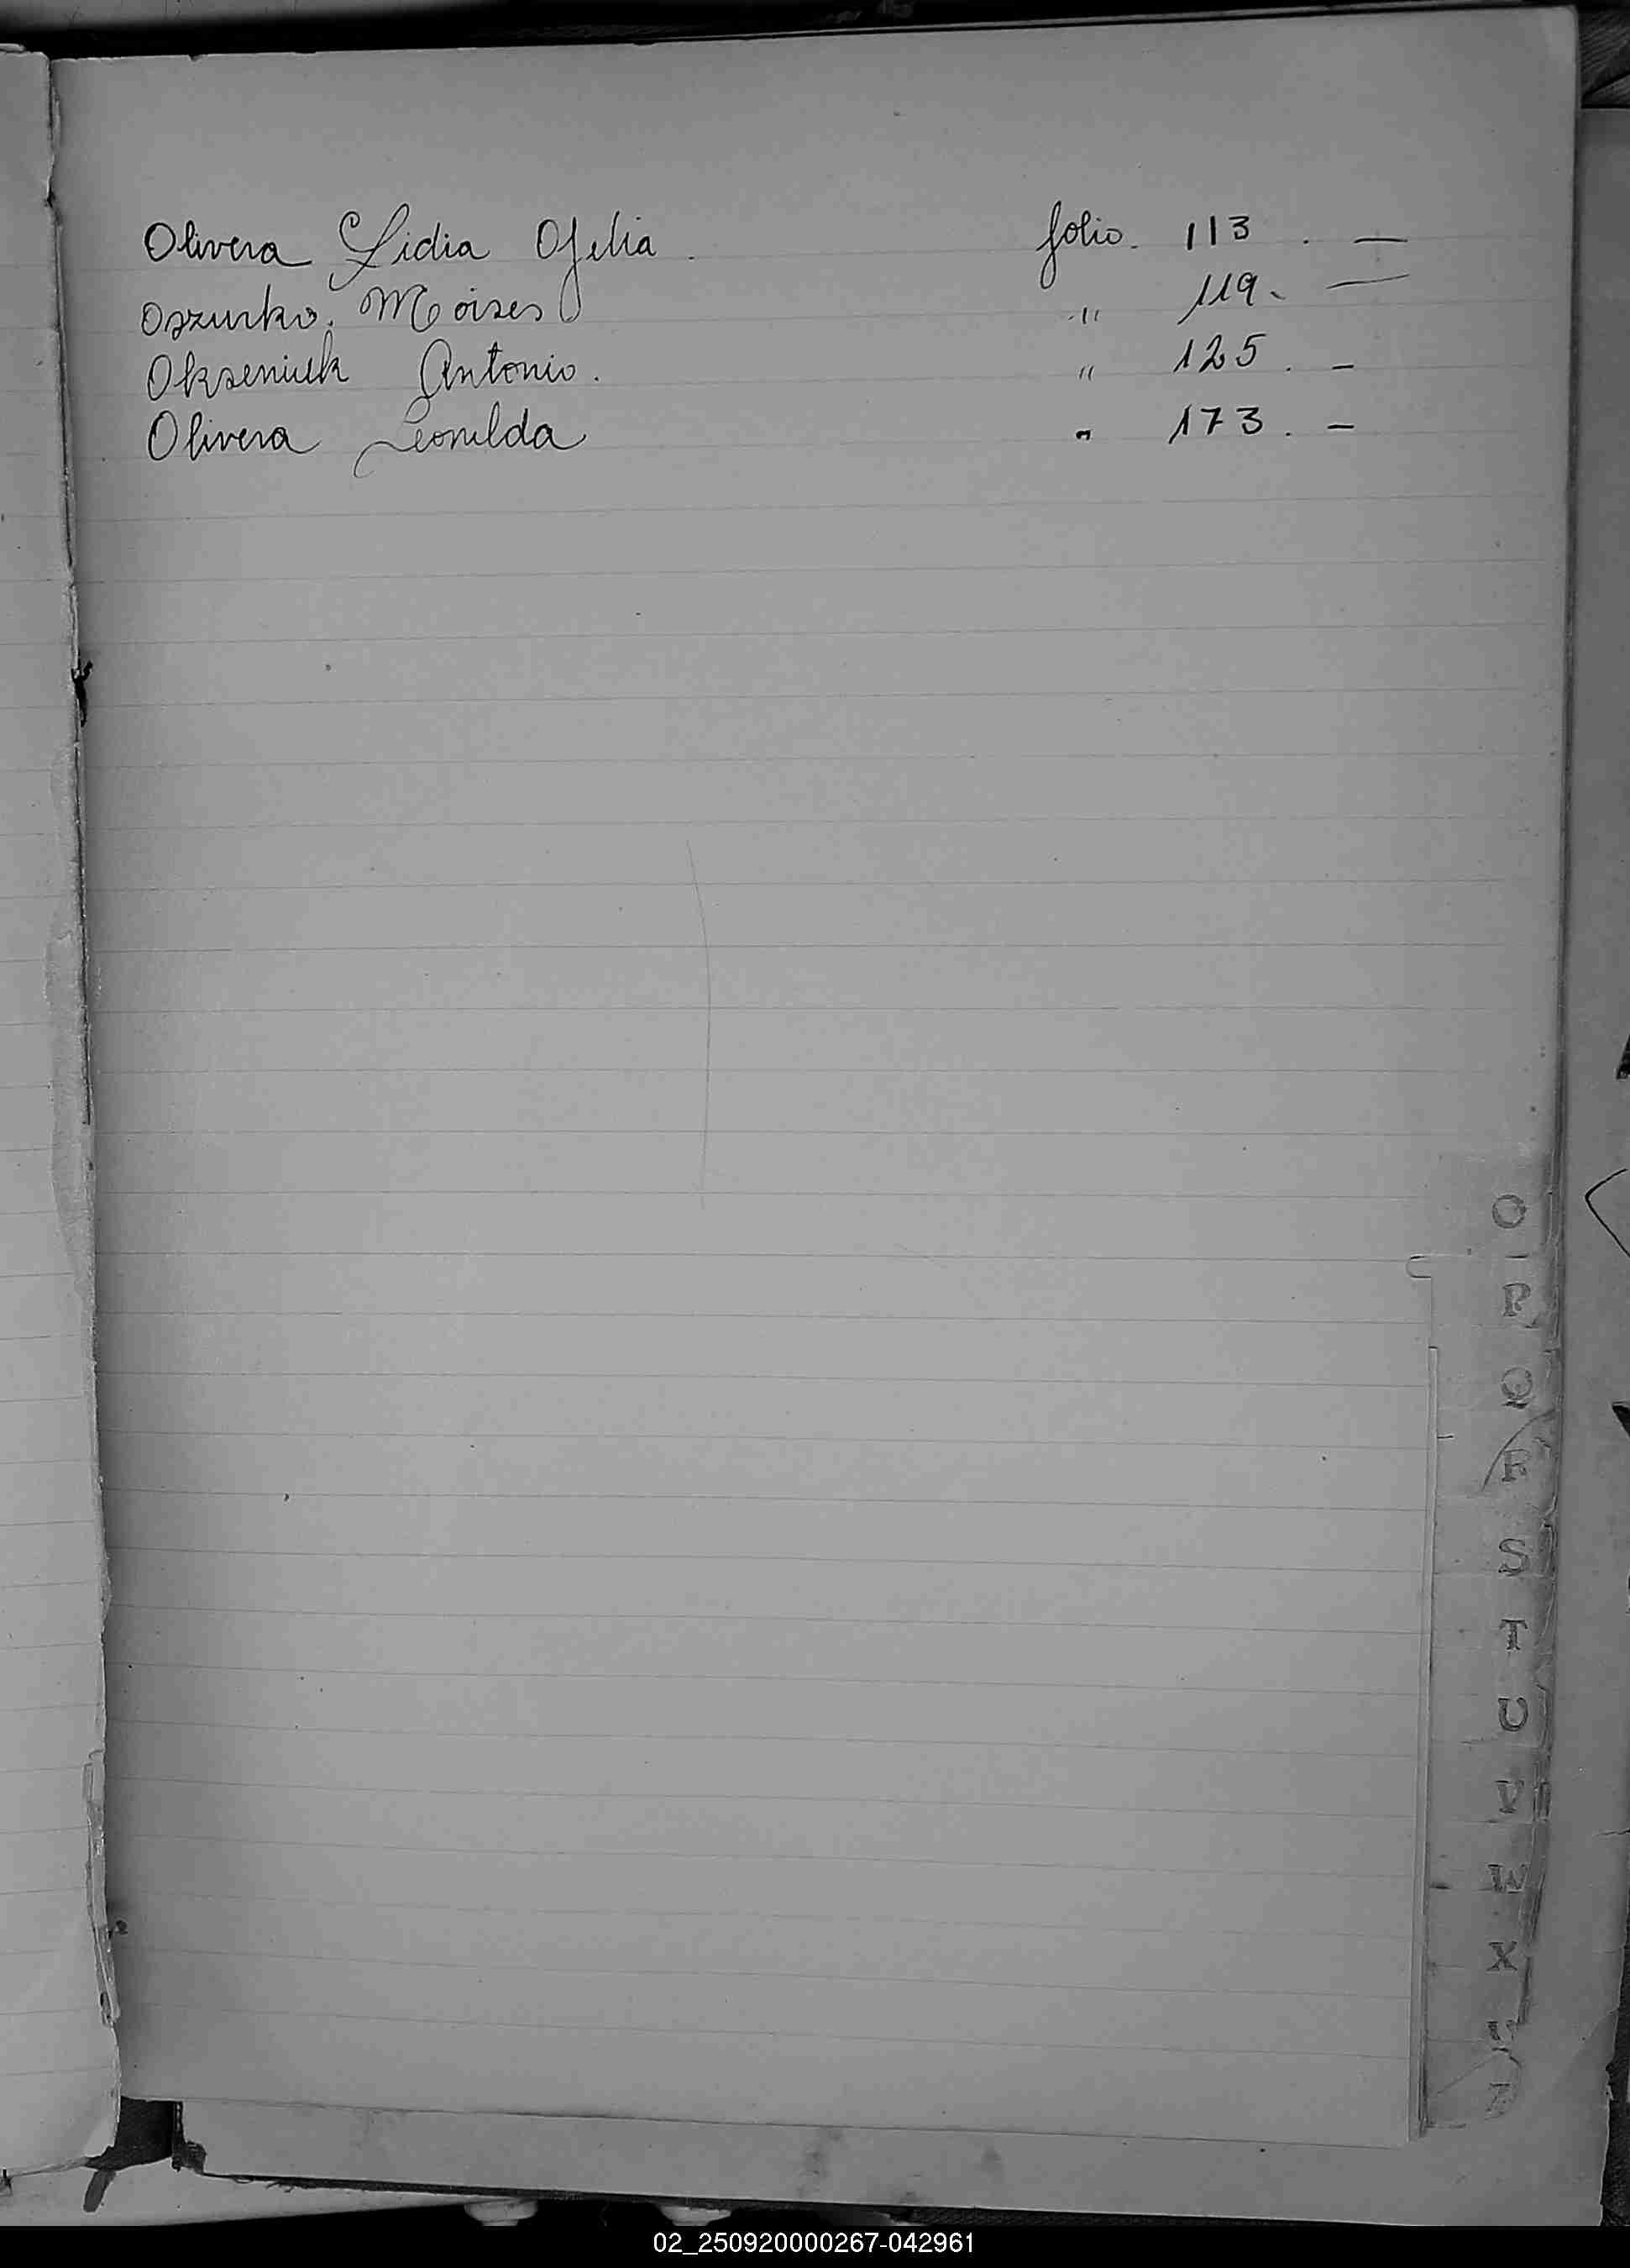 Olivera Lidia Ofelia. folio. 113. —
Oszurko. Moises " 119. —
Okseniuk Antonio. " 125. —
Olivera Leonilda " 173. —
O
P
Q
R
S
T
U
V
W
X
Y
Z
02_250920000267-042961